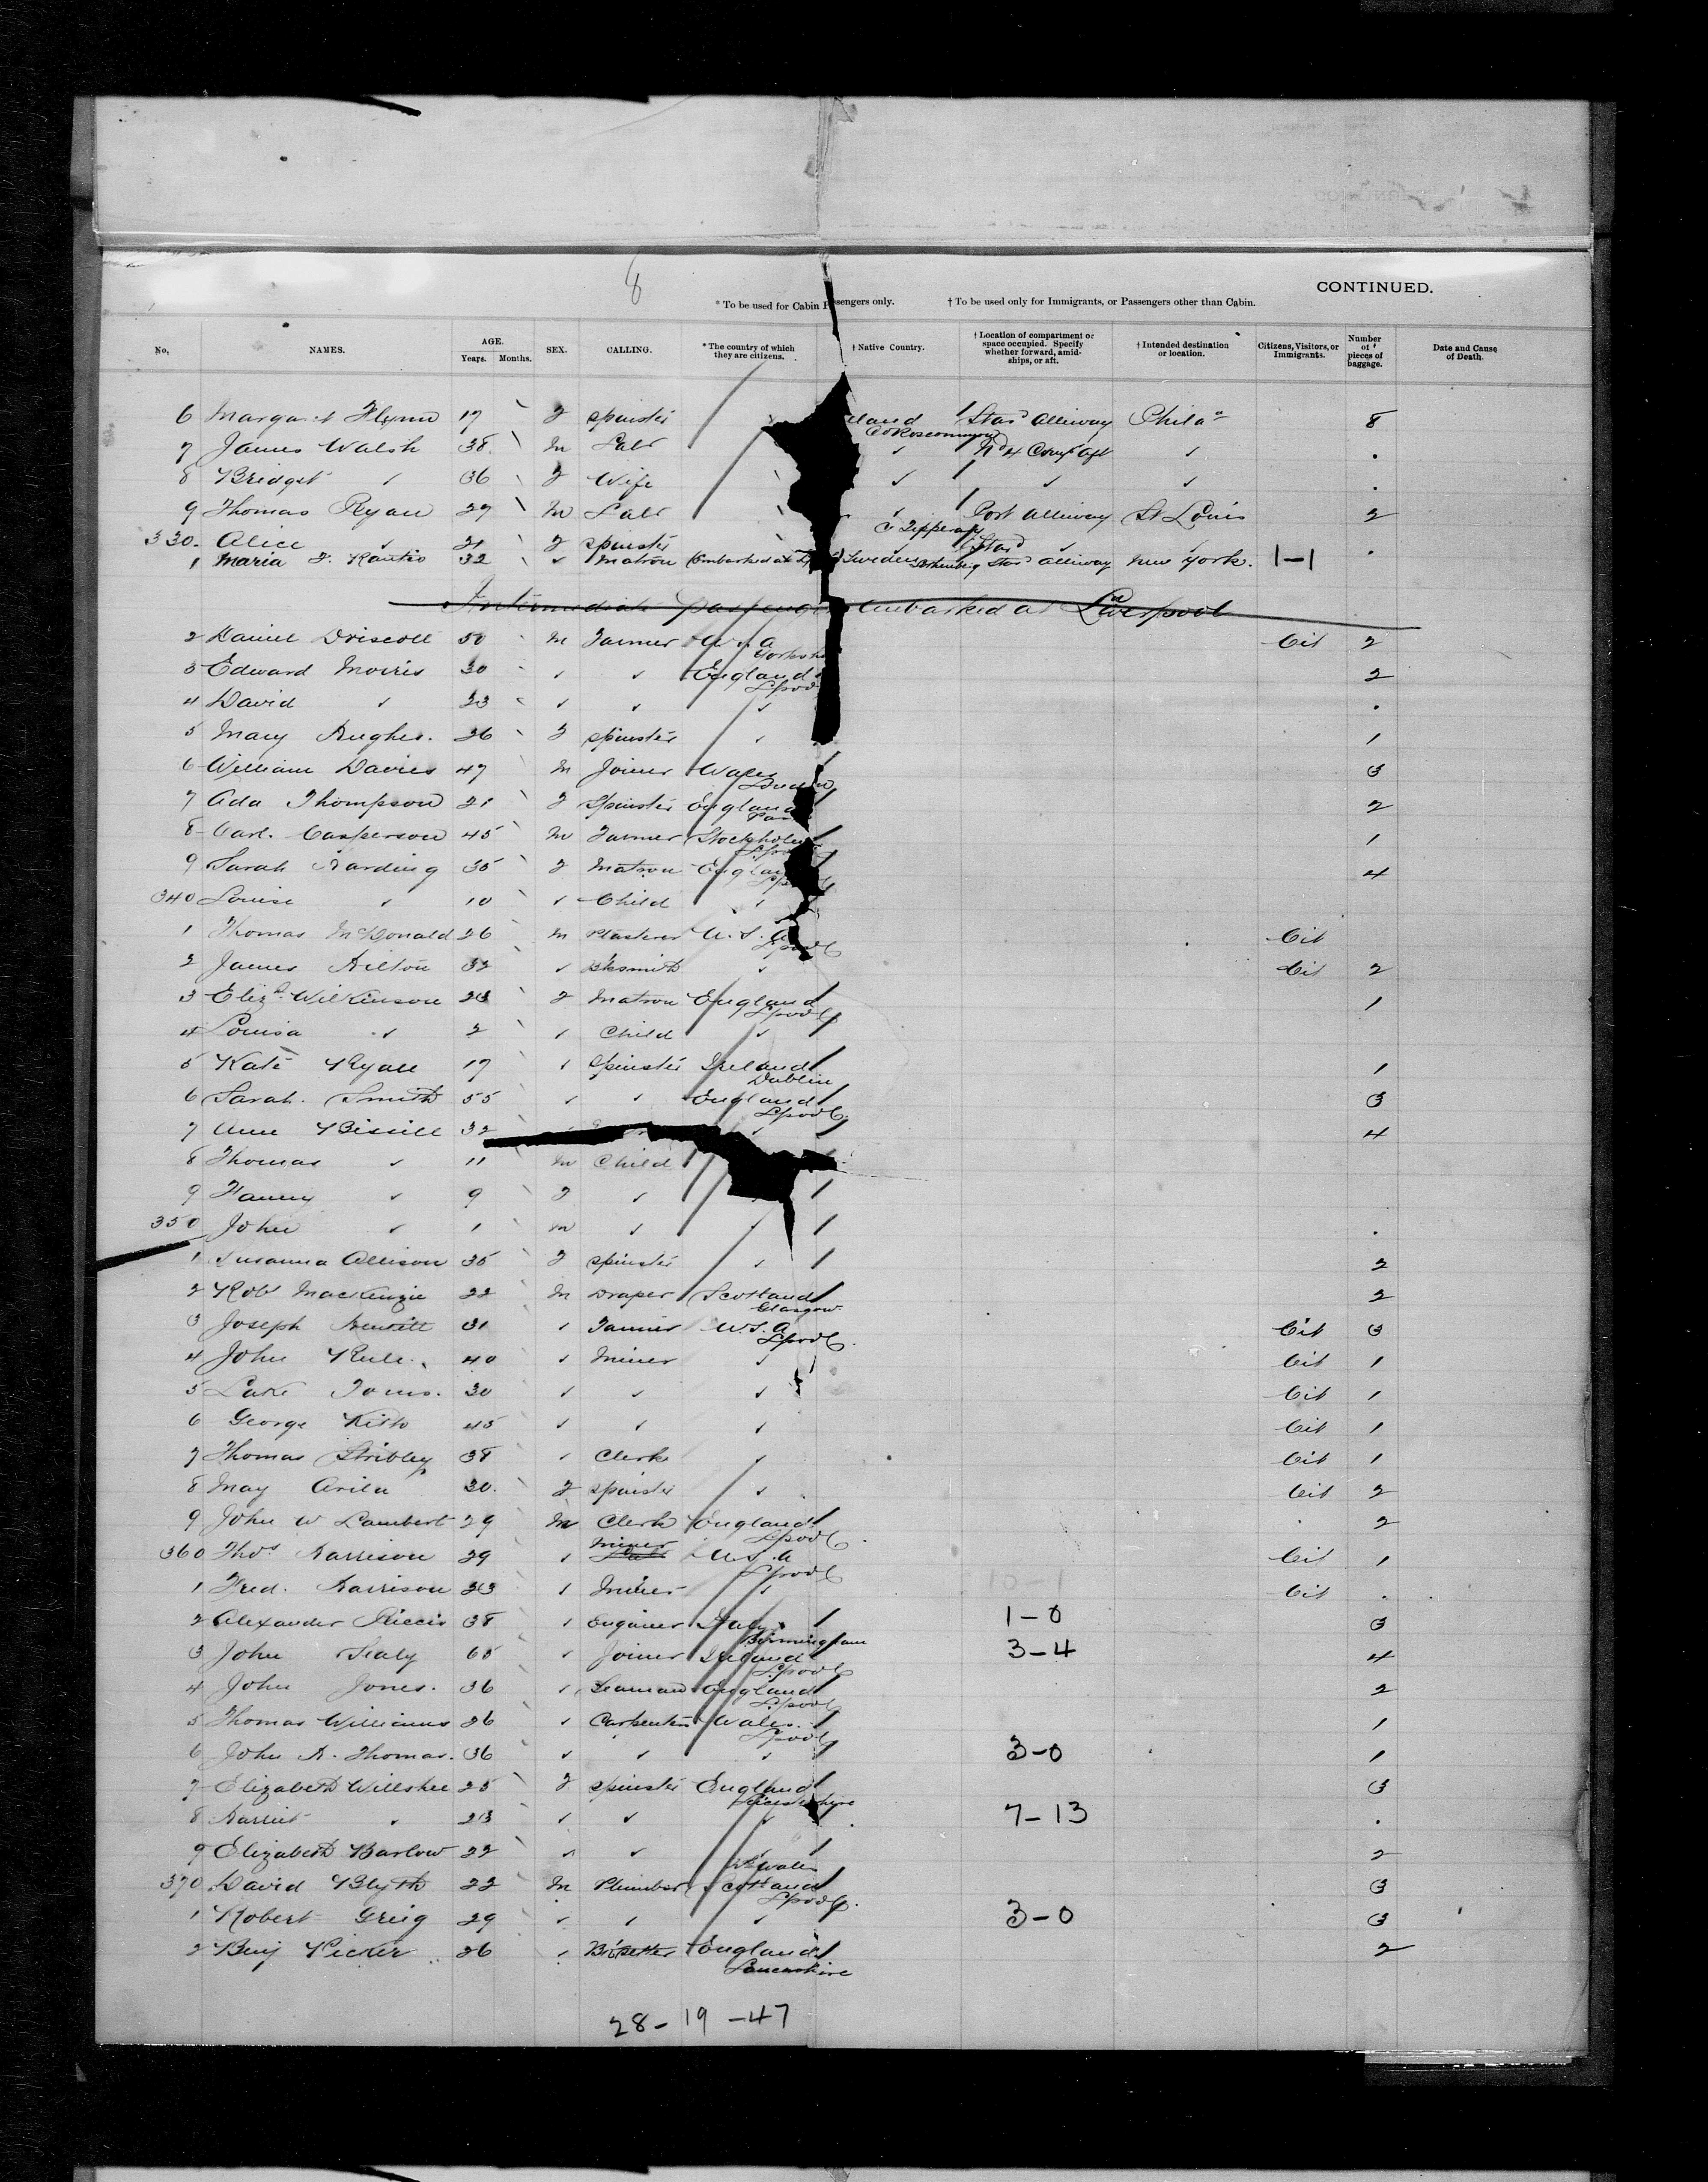 8
CONTINUED.
* To be used for Cabin Passengers only. † To be used only for Immigrants, or Passengers other than Cabin.
No. NAMES. AGE. Years. Months. SEX. CALLING. * The country of which they are citizens. † Native Country. † Location of compartment or space occupied. Specify whether forward, amidships, or aft. † Intended destination or location. Citizens, Visitors, or Immigrants. Number of pieces of baggage. Date and Cause of Death.
6 Margaret Flynn 17 F Spinster Stard Alliway Phila 8
Co Roscommon
7 James Walsh 38 M Labr ✓ No 4 Compt Aft ✓
8 Bridget ✓ 36 F Wife ✓ ✓ ✓
9 Thomas Ryan 27 M Labr ✓ Port Alliway St Louis 2
Co Tipperary
330 Alice ✓ 21 F Spinster ✓ Stard ✓ ✓
1 Maria 32 ✓ Matron Embarked at Sweden Stard Alliway New York. 1-1
Intermediate Passengers embarked at Liverpool
2 Daniel Driscoll 50 M Farmer U.S.A Cit 2
3 Edward Morris 30 ✓ ✓ England 2
Lpool
4 David ✓ 23 ✓ ✓ ✓
5 Mary Hughes. 26 F Spinster ✓ 1
6 William Davies 47 M Joiner Wales 3
London
7 Ada Thompson 21 F Spinster England 2
8 Carl. Casperson 45 M Farmer Stockholm 1
Lpool
9 Sarah Harding 35 F Matron England 4
Lpool
340 Louise ✓ 10 ✓ Child ✓
1 Thomas McDonald 26 M Plasterer U.S.A Cit
Lpool
2 James Hilton 32 ✓ Bksmith ✓ Cit 2
3 Elizth Wilkinson 23 F Matron England 1
Lpool
4 Louisa ✓ 2 ✓ Child ✓
5 Kate Ryall 17 ✓ Spinster Ireland 1
Dublin
6 Sarah. Smith 55 ✓ ✓ England 3
Lpool
7 Ann Bissill 32 4
8 Thomas ✓ 11 M Child
9 Fanny ✓ 9 F ✓
350 John ✓ 1 M ✓ ✓
1 Susanna Allison 35 F Spinster ✓ 2
2 Robt MacKenzie 22 M Draper Scotland 2
Glasgow
3 Joseph Hewitt 31 ✓ U.S.A Cit 3
Lpool.
4 John Rule. 40 ✓ Miner ✓ Cit 1
5 Luke 30 ✓ ✓ ✓ Cit 1
6 George Kitto 45 ✓ ✓ ✓ Cit 1
7 Thomas Stribley 38 ✓ Clerk ✓ Cit 1
8 May 30. F Spinster ✓ Cit 2
9 John W Lambert 29 M Clerk England 2
Lpool
360 Thos Harrison 29 ✓ Miner U.S.A Cit 1
Lpool
1 Fred. Harrison 23 ✓ Miner ✓ Cit
2 Alexander Riccio 38 ✓ Engineer Italy 1-0 3
Birmingham
3 John Staly 65 ✓ Joiner Ireland 3-4 4
Lpool
4 John Jones. 36 ✓ Seaman England 2
Lpool
5 Thomas Williams 26 ✓ Carpenter Wales. 1
Lpool
6 John H. Thomas. 36 ✓ ✓ ✓ 3-0 1
7 Elizabeth Willshee 25 F Spinster England 3
Leicestershire
8 Harriet ✓ 23 ✓ ✓ ✓ 7-13
9 Elizabeth Barlow 22 ✓ ✓ ✓ 2
370 David Blyth 22 M Plumber Scotland 3
Lpool.
1 Robert Greig 29 ✓ ✓ ✓ 3-0 3
2 Benj Picker 26 ✓ England 2
Lancashire
28-19-47